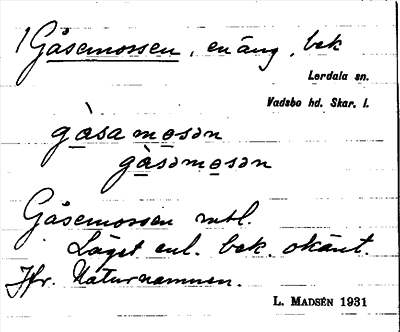 1 Gåsemossen, en äng, bek
Lerdala sn.
Vadsbo hd. Skar. l.
gå̀samosən
gå̀səmosən
Gåsemossen mtl.
Läget enl. bek. okänt.
Jfr. Naturnamnen.
L. MADSÉN 1931